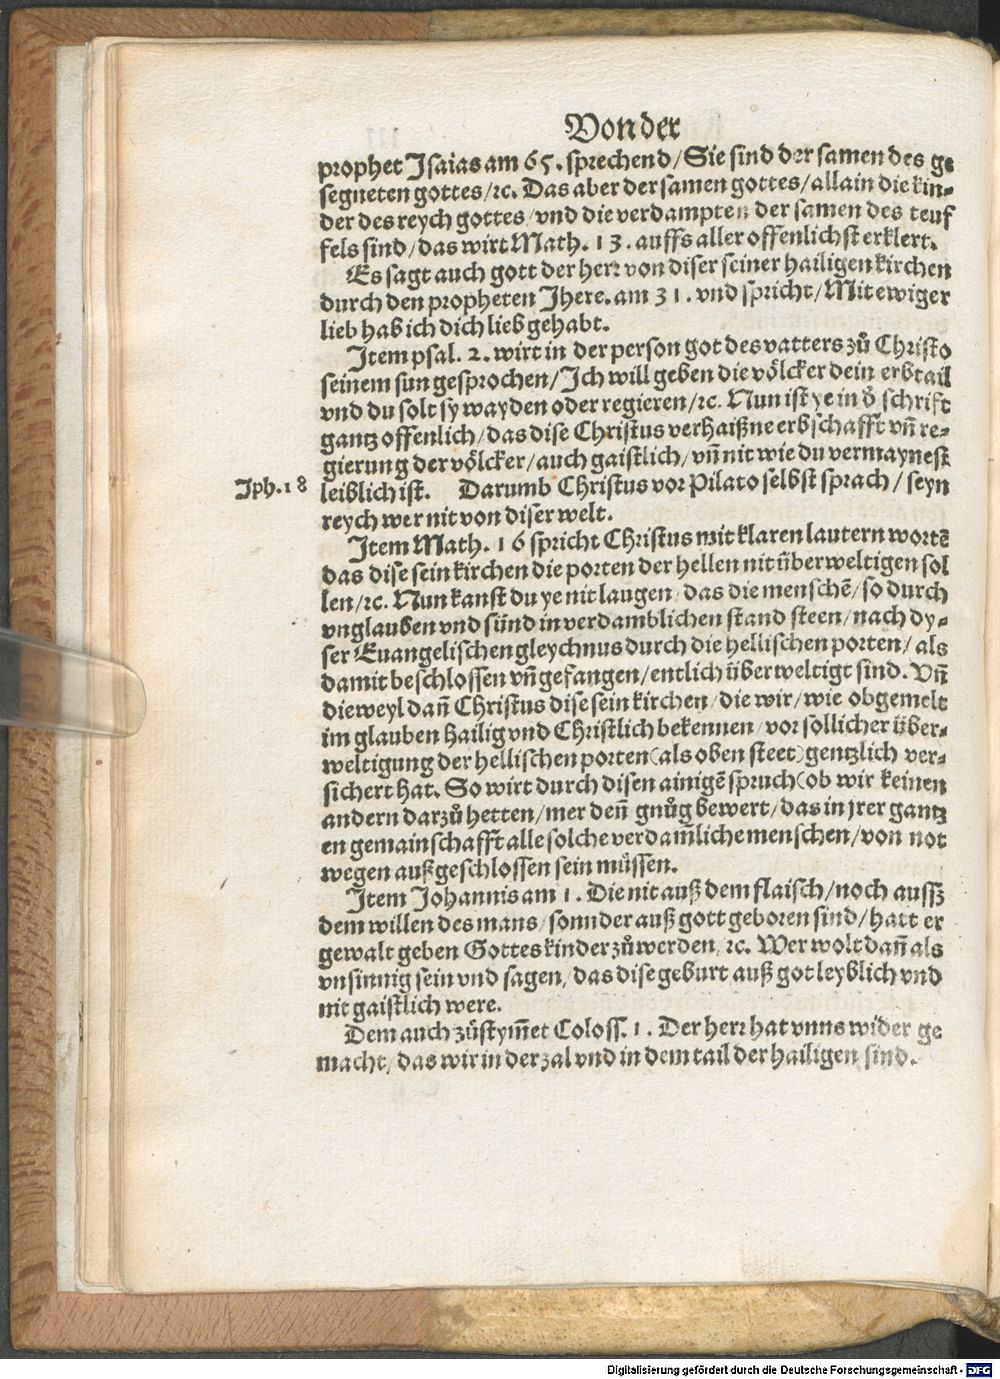 Von der
prophet Isaias am 65. sprechend/Sie sind der samen des ge
segneten gottes/ꝛc. Das aber der samen gottes/allain die kin-
der des reych gottes/vnd die verdampten der samen des teuf
fels sind/das wirt Math. 13. auffs aller offenlichst erklert.
Es sagt auch gott der herr von diser seiner hailigen kirchen
durch den propheten Jhere. am 31. vnd spricht/Mit ewiger
lieb hab ich dich lieb gehabt.
Item psal. 2. wirt in der person got des vatters zů Christo
seinem sun gesprochen/Ich will geben die völcker dein erbtail
vnd du solt sy wayden oder regieren/ꝛc. Nun ist ye in d̕ schrift
gantz offenlich/das dise Christus verhaißne erbschafft vñ re-
gierung der völcker/auch gaistlich/vñ nit wie du vermaynest
Jph. 18 leiblich ist. Darumb Christus vor Pilato selbst sprach/seyn
reych wer nit von diser welt.
Item Math. 16 spricht Christus mit klaren lautern wortē
das dise sein kirchen die porten der hellen nit überweltigen sol
len/ꝛc. Nun kanst du ye nit laugen/das die menschē/so durch
vnglauben vnd sünd in verdamblichen stand steen/nach dy-
ser Euangelischen gleychnus durch die hellischen porten/als
damit beschlossen vñ gefangen/entlich überweltigt sind. Vñ
dieweyl dañ Christus dise sein kirchen/die wir/wie obgemelt
im glauben hailig vnd Christlich bekennen/vor sollicher über-
weltigung der hellischen porten(als oben steet)gentzlich ver-
sichert hat. So wirt durch disen ainigē spruch(ob wir keinen
andern darzů hetten/mer deñ gnůg bewert/das in jrer gantz
en gemainschafft alle solche verdam̄liche menschen/von not
wegen außgeschlossen sein müssen.
Item Johannis am 1. Die nit auß dem flaisch/noch aussz
dem willen des mans/sonnder auß gott geboren sind/hatt er
gewalt geben Gottes kinder zů werden/ꝛc. Wer wolt dañ als
vnsinnig sein vnd sagen/das dise geburt auß got leyblich vnd
nit gaistlich were.
Dem auch zůstym̄et Coloss. 1. Der herr hat vnns wider ge
macht/das wir in der zal vnd in dem tail der hailigen sind.
Digitalisierung gefördert durch die Deutsche Forschungsgemeinschaft - DFG